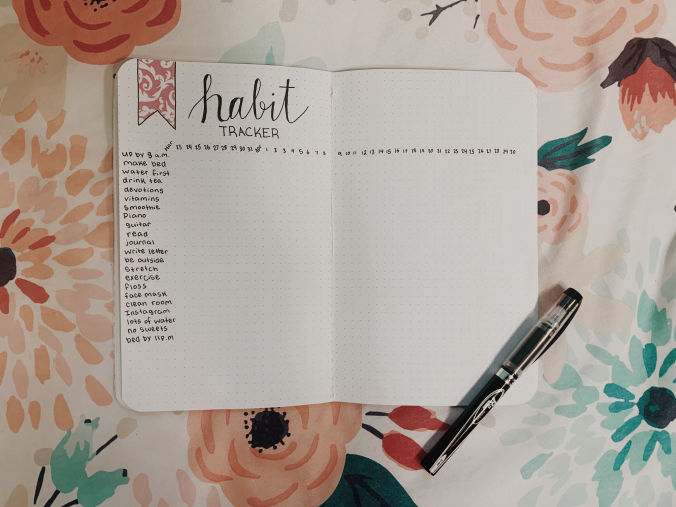 habit
TRACKER
mar 23 24 25 26 27 28 29 30 31 apr 1 2 3 4 5 6 7 8 9 10 11 12 13 14 15 16 17 18 19 20 21 22 23 24 25 26 27 28 29 30
up by 9 a.m.
make bed
water first
drink tea
devotions
vitamins
smoothie
Piano
guitar
read
journal
write letter
be outside
Stretch
exercise
floss
face mask
clean room
Instagram
lots of water
no sweets
bed by 11p.m